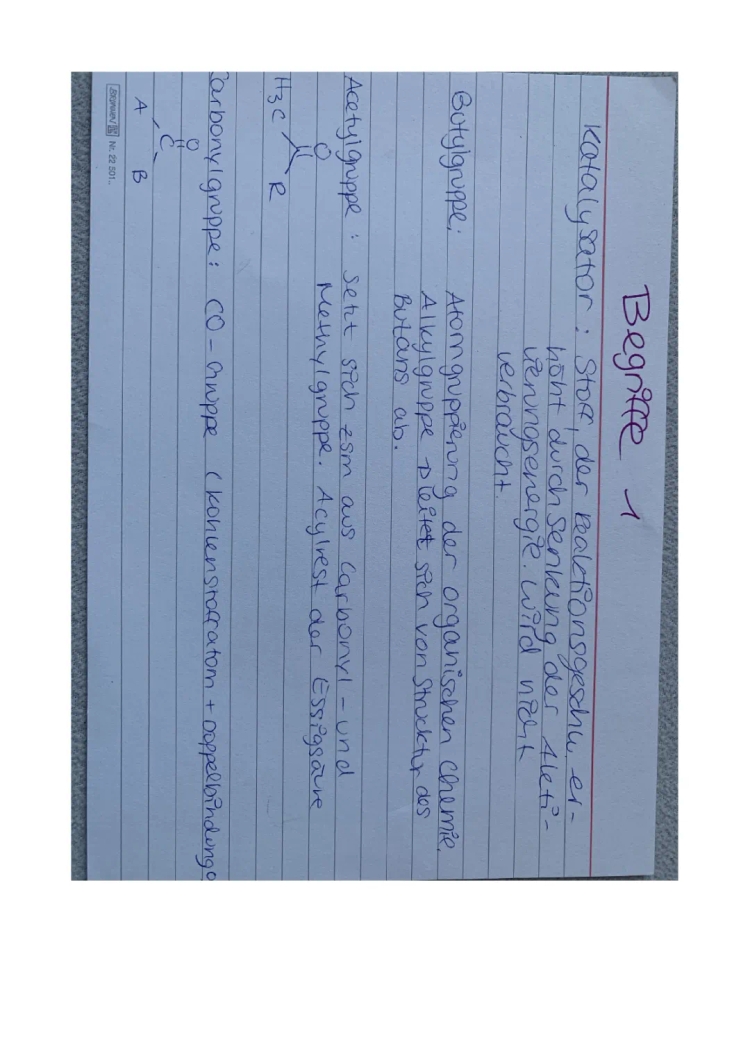 Begriffe 1
Katalysator: Stoff, der Reaktionsgeschw. er-
höht durch Senkung der Akti-
vierungsenergie. Wird nicht
verbraucht.
Butylgruppe: Atomgruppierung der organischen Chemie.
Alkylgruppe → leitet sich von Struktur des
Butans ab.
Acetylgruppe: Setzt sich zsm aus Carbonyl- und
Methylgruppe. Acylrest der Essigsäure
O
H₃C R
Carbonylgruppe: CO-Gruppe (Kohlenstoffatom + Doppelbindung O
O
C
A B
Nr. 22 501..